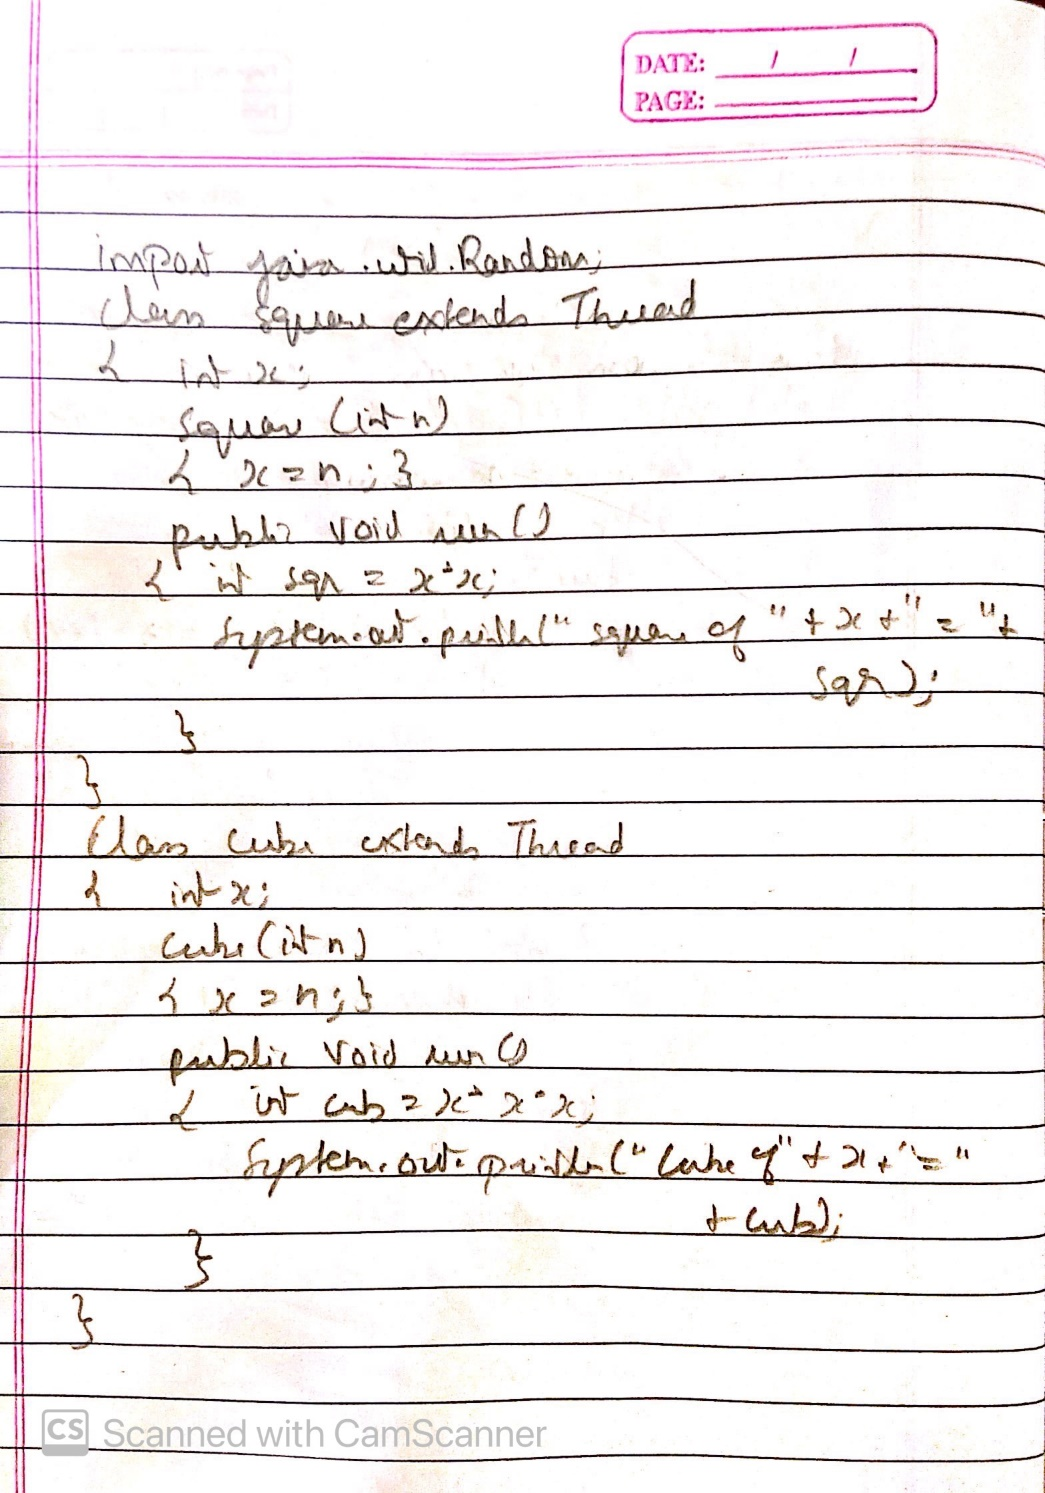 DATE: / /
PAGE:
import java.util.Random;
class Square extends Thread
{ int x;
Square (int n)
{ x = n ; }
public void run ()
{ int sqr = x*x;
System.out.println(" square of " + x + " = " +
sqr);
}
}
Class Cube extends Thread
{ int x;
Cube (int n)
{ x = n ; }
public void run ()
{ int cub = x* x*x;
System.out.println(" Cube of " + x + " = "
+ cub);
}
}
CS Scanned with CamScanner